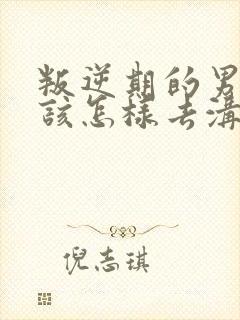 叛逆期的男
该怎样去溝
倪志琪